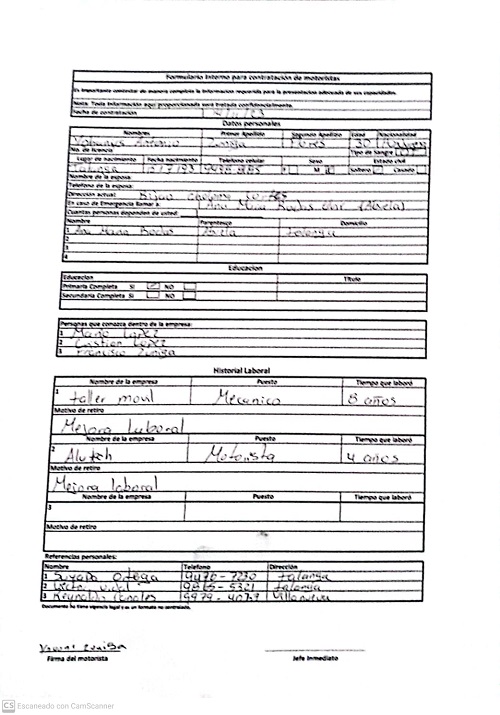 Formulario Interno para contratación de motoristas
Es importante contestar de manera completa la información requerida para la presentación adecuada de sus capacidades.
Nota: Toda información aquí proporcionada será tratada confidencialmente.
Fecha de contratación
Datos personales
Nombres Primer Apellido Segundo Apellido Edad Nacionalidad
Zuniga Flores 30
No. de licencia Tipo de Sangre
Lugar de nacimiento Fecha nacimiento Telefono celular Sexo Estado civil
Talanga F M Soltero Casado
Nombre de la esposa:
Telefono de la esposa:
Dirección actual:
En caso de Emergencia llamar a Ana Maria Rodas (Abuela)
Cuantas personas dependen de usted:
Nombre Parentesco Domicilio
1 Ana Maria Rodas Abuela talanga
2
3
4
Educacion
Educacion Titulo
Primaria Completa SI NO
Secundaria Completa SI NO
Personas que conozca dentro de la empresa:
1 Mario Lopez
2 Cristian Lopez
3 Francisco Zuniga
Historial Laboral
Nombre de la empresa Puesto Tiempo que laboró
1 taller movil Mecanico 8 años
Motivo de retiro
Mejora Laboral
Nombre de la empresa Puesto Tiempo que laboró
2 Alutech Motorista 4 años
Motivo de retiro
Mejora laboral
Nombre de la empresa Puesto Tiempo que laboró
3
Motivo de retiro
Referencias personales:
Nombre Telefono Dirección
1 Suyapa Ortega 9476-7230 talanga
2 Victor Vidal 9865-5321 talanga
3 Reynaldo Canales Villanueva
Documento no tiene vigencia legal y es un formato no controlado.
Firma del motorista Jefe Inmediato
CS Escaneado con CamScanner